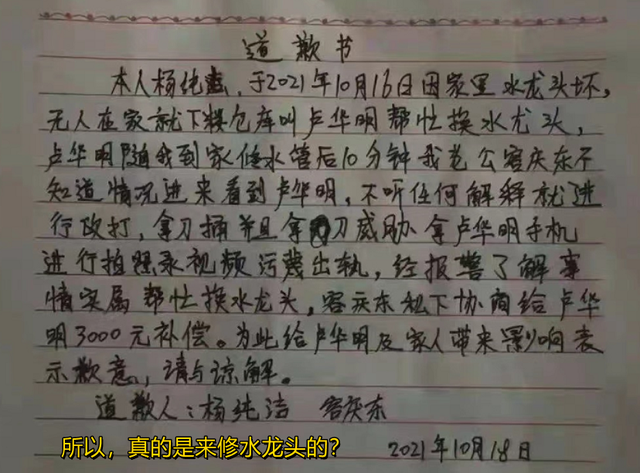 道歉书
本人杨纯洁，于2021年10月16日因家里水龙头坏，
无人在家就下楼仓库叫卢华明帮忙换水龙头，
卢华明随我到家修水管后10分钟我老公客庆东不
知道情况进来看到卢华明，不听任何解释就进
行攻打，拿刀捅并且拿刀威胁拿卢华明手机
进行拍照录视频污蔑出轨，经报警了解事
情实属帮忙换水龙头，客庆东私下协商给卢华
明3000元补偿。为此给卢华明及家人带来影响表
示歉意，请与谅解。
道歉人：杨纯洁 客庆东
所以，真的是来修水龙头的？ 2021年10月18日